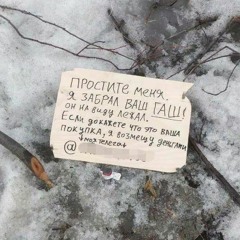 ПРОСТИТЕ МЕНЯ
Я ЗАБРАЛ ВАШ ГАШ!
ОН НА ВИДУ ЛЕЖАЛ.
ЕСЛИ ДОКАЖЕТЕ ЧТО ЭТО ВАША
ПОКУПКА, Я ВОЗМЕЩУ ДЕНЬГАМИ
МОЯ ТЕЛЕГА
@